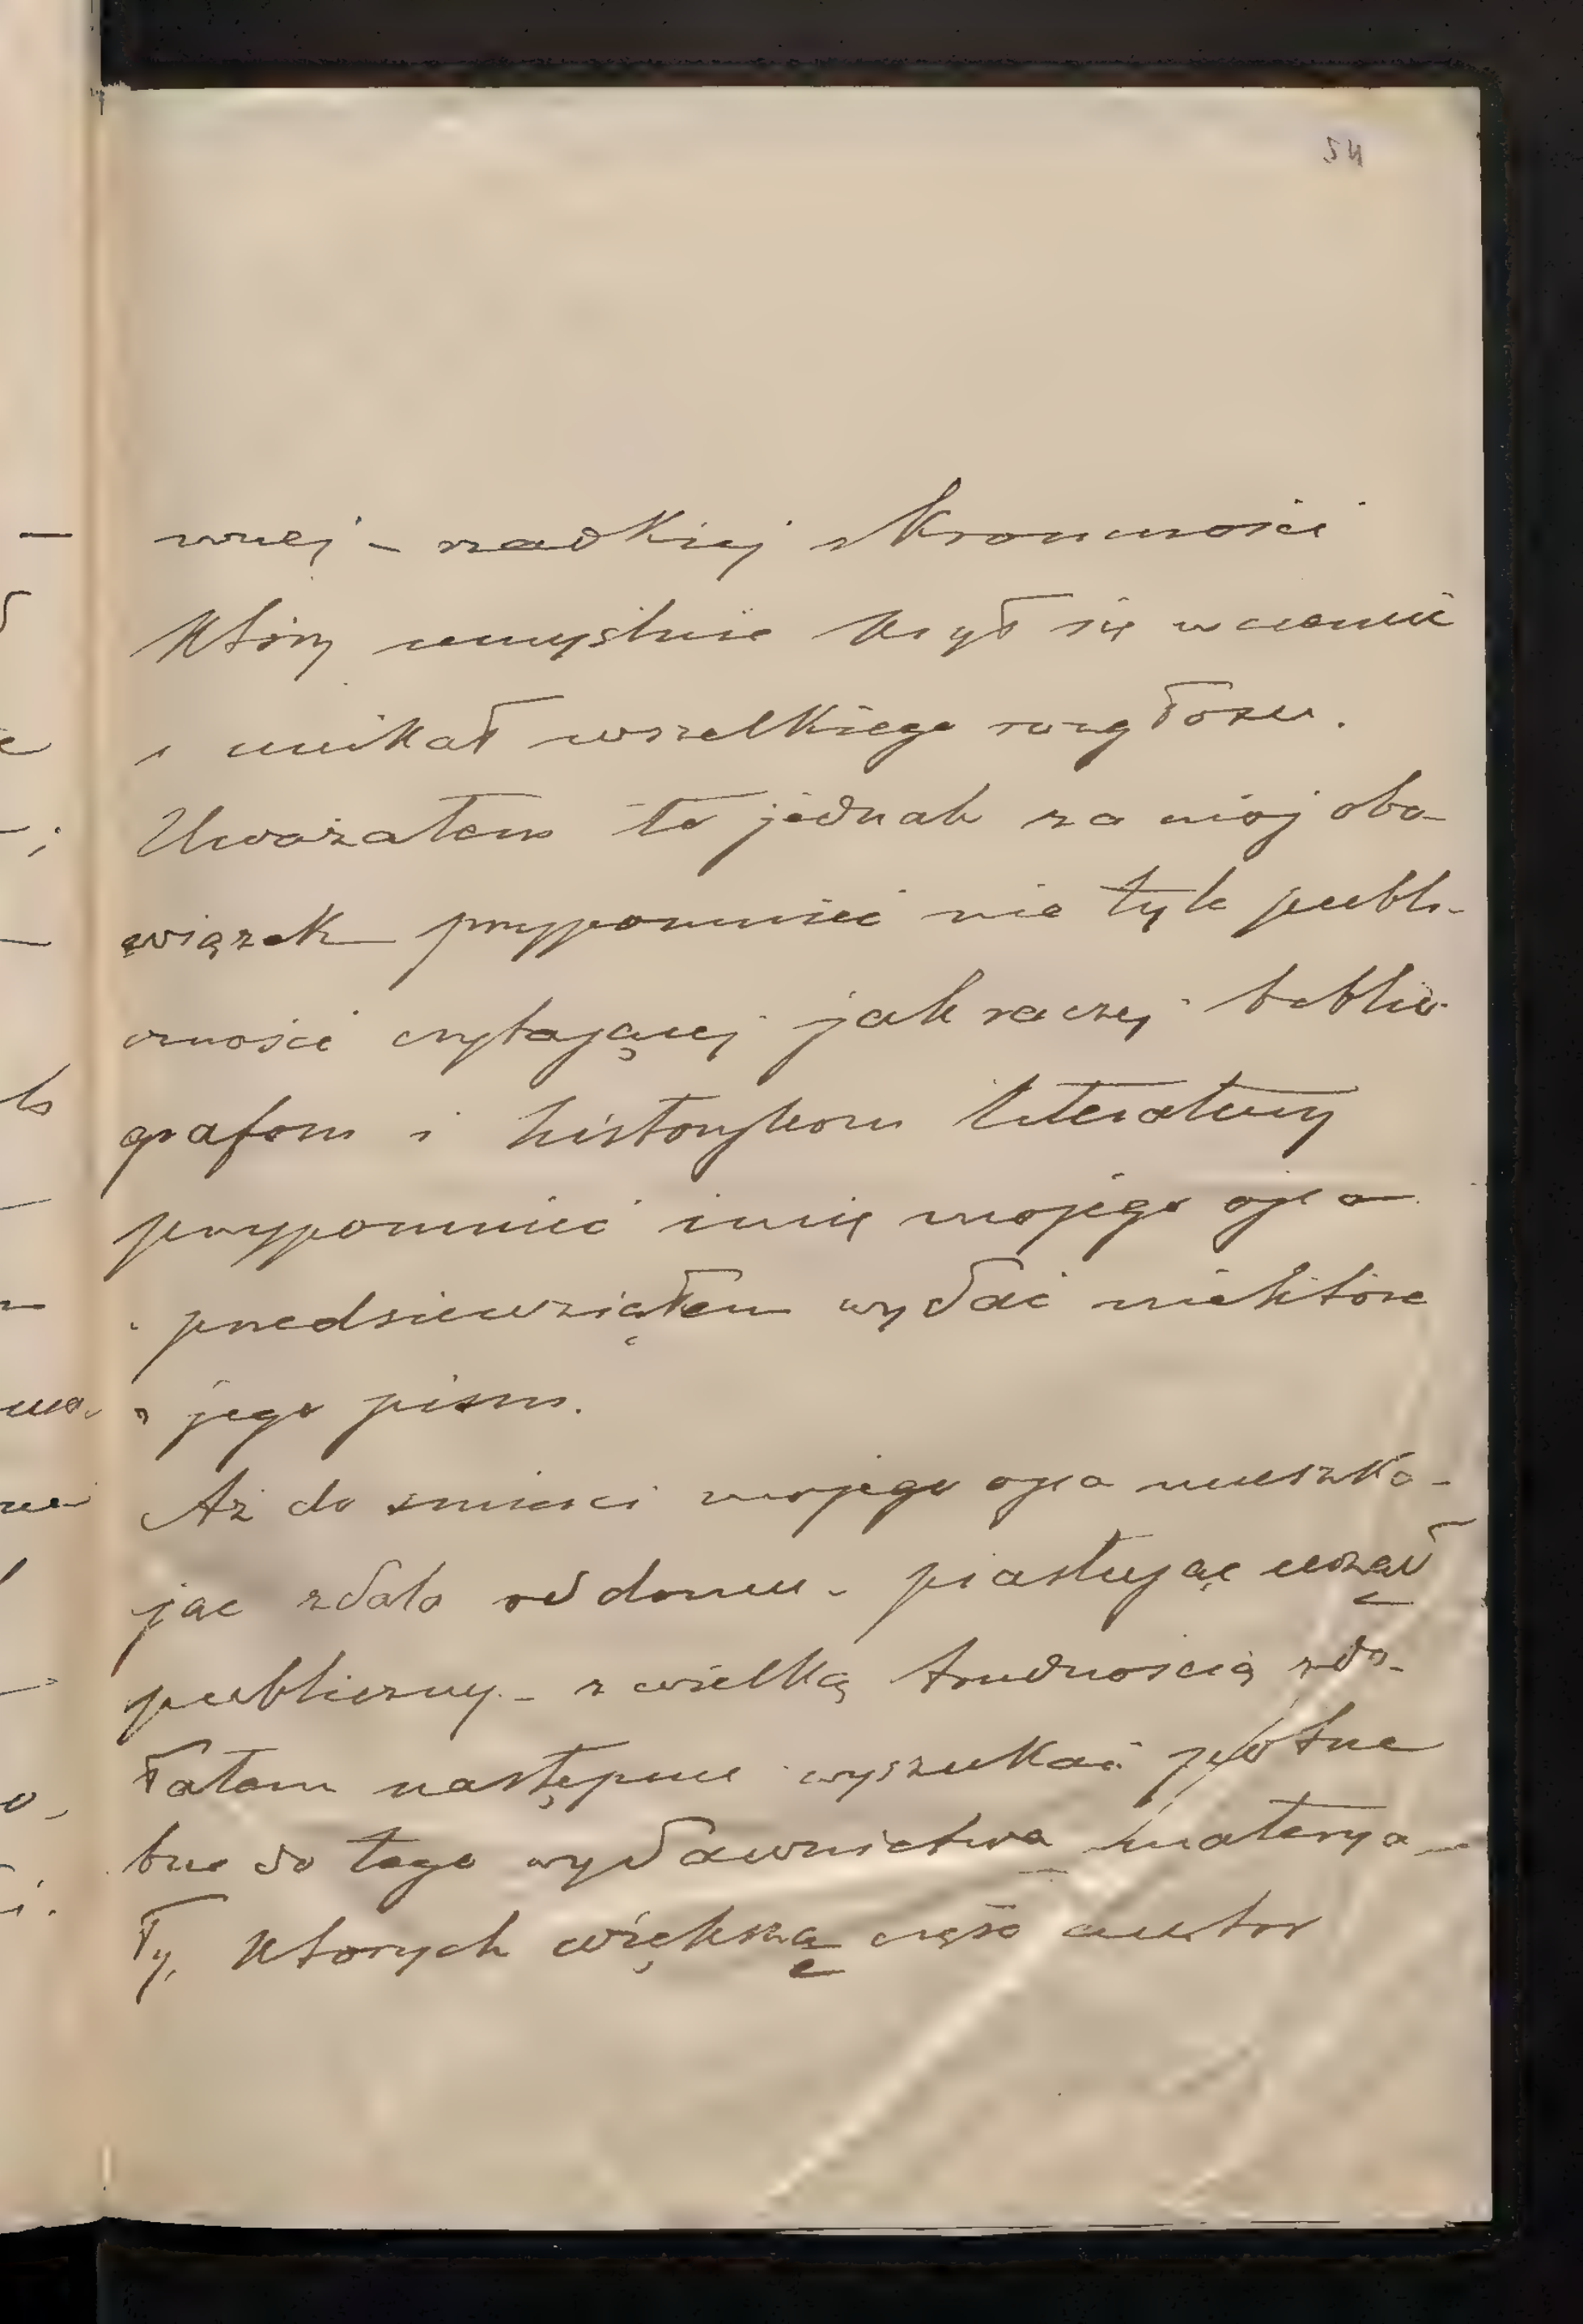 54
wnej – rzadkiej skromności
który umyślnie krył się w cieniu
i unikał wszelkiego rozgłosu.
Uważałem to jednak za mój obo-
wiązek przypomnieć nie tyle publi-
czności czytającej jak raczej biblio-
grafom i historykom literatury
przypomnieć imię mojego ojca
i przedsiewziąłem wydać niektóre
z jego pism.
Aż do śmierci mojego ojca mieszka-
jąc zdala od domu – piastując urząd
publiczny – z wielką trudnością zdo-
łałem następnie wyszukać
bne do tego wydawnictwa materya-
ły, których większą część autor